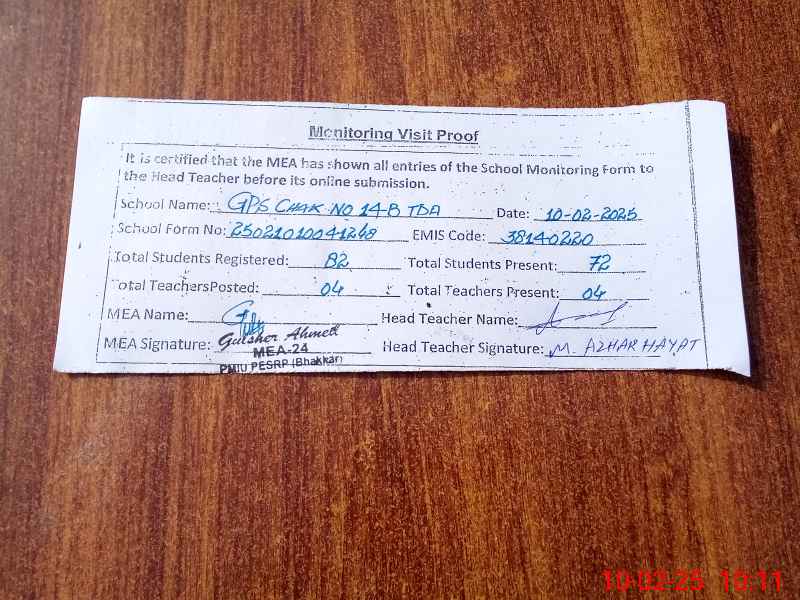 Monitoring Visit Proof
It is certified that the MEA has shown all entries of the School Monitoring Form to
the Head Teacher before its online submission.
School Name: GPS CHAK NO 14-B TDA Date: 10-02-2025
School Form No: 25021010041248 EMIS Code: 38140220
Total Students Registered: 82 Total Students Present: 72
Total TeachersPosted: 04 Total Teachers Present: 04
MEA Name: Head Teacher Name:
MEA Signature: Gulsher Ahmed Head Teacher Signature: M. AZHAR HAYAT
MEA-24
PMIU PESRP (Bhakkar)
10-02-25 10:11